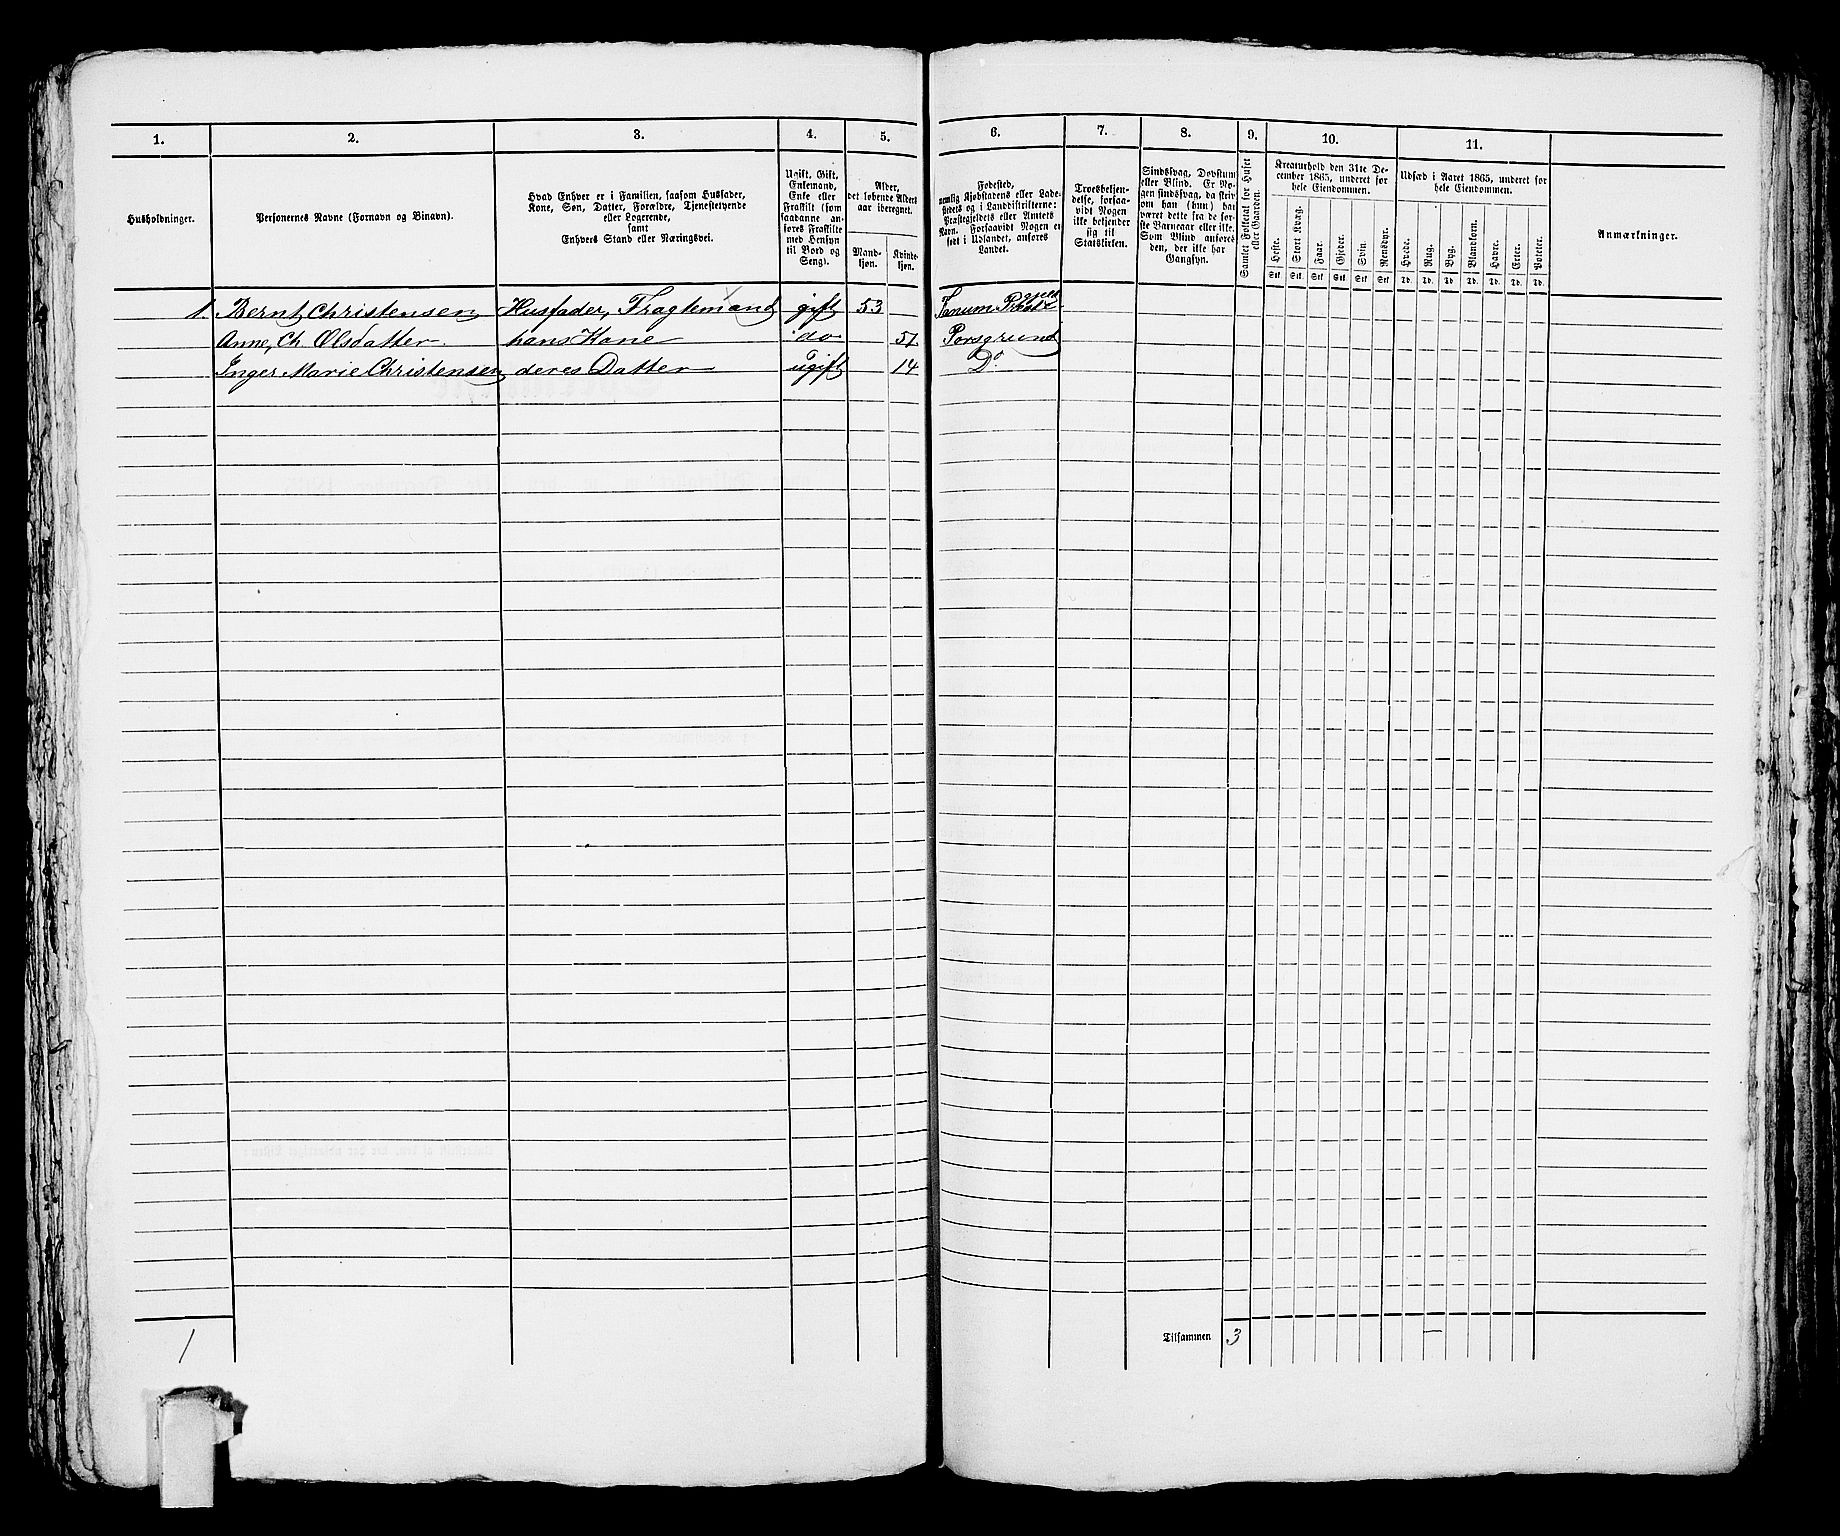 1.
2.
3.
4.
5.
6.
7.
8.
9.
10.
11.
Husholdninger.
Personernes Navne (Fornavn og Binavn).
Hvad Enhver er i Familien, saasom Husfader,
Kone, Søn, Datter, Forældre, Tjenestetyende
eller Logerende,
samt
Enhvers Stand eller Næringsvei.
Ugift, Gift,
Enkemand,
Enke eller
Fraskilt (som
saadanne an-
føres Fraskilte
med Hensyn
til Bord og
Seng).
Alder,
det løbende Alders-
aar iberegnet.
Mand-
kjøn.
Kvinde-
kjøn.
Fødested,
nemlig Kjøbstadens eller Lade-
stedets og i Landdistrikterne:
Præstegjeldets eller Amtets
Navn. Forsaavidt Nogen er
født i Udlandet, anføres
Landet.
Troesbekjen-
delse, forsaa-
vidt Nogen
ikke bekjender
sig til
Statskirken.
Sindssvag, Døvstum
eller Blind. Er No-
gen sindssvag, da skriv
om han (hun) har
været dette fra de før-
ste Barneaar eller ikke.
Som Blind anføres
den, der ikke har
Gangsyn.
Samlet Folketal for Huset
eller Gaarden.
Kreaturhold den 31te De-
cember 1865, underet for
hele Eiendommen.
Heste.
Stort Kvæg.
Faar.
Gjeder.
Svin.
Rensdyr.
Stk Stk Stk Stk Stk Stk
Udsæd i Aaret 1865, underet for
hele Eiendommen.
Hvede.
Rug.
Byg.
Blandkorn.
Havre.
Erter.
Poteter.
Td. Td. Td Td. Td. Td. Td.
Anmærkninger.
1. Bernt Christensen Husfader, Fragtemand gift 53 Tanum
Anne, Ch. Olsdatter hans Kone do 51 Porsgrund
Inger Marie Christensen deres Datter ugift 14 Do
1 Tilsammen 3 —